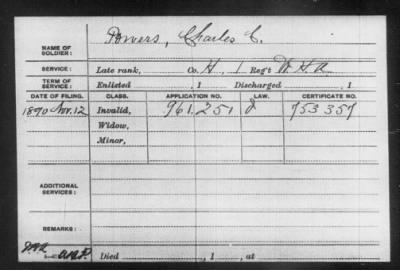 Powers, Charles C.
NAME OF
SOLDIER:
SERVICE: Late rank, Co. H, 1 Reg't W. H. A.
TERM OF
SERVICE: Enlisted , 1 Discharged , 1
DATE OF FILING. CLASS. APPLICATION NO. LAW. CERTIFICATE NO.
1890 Nov. 12 Invalid, 961.251 753357
Widow,
Minor,
ADDITIONAL
SERVICES:
REMARKS:
Died , 1 , at